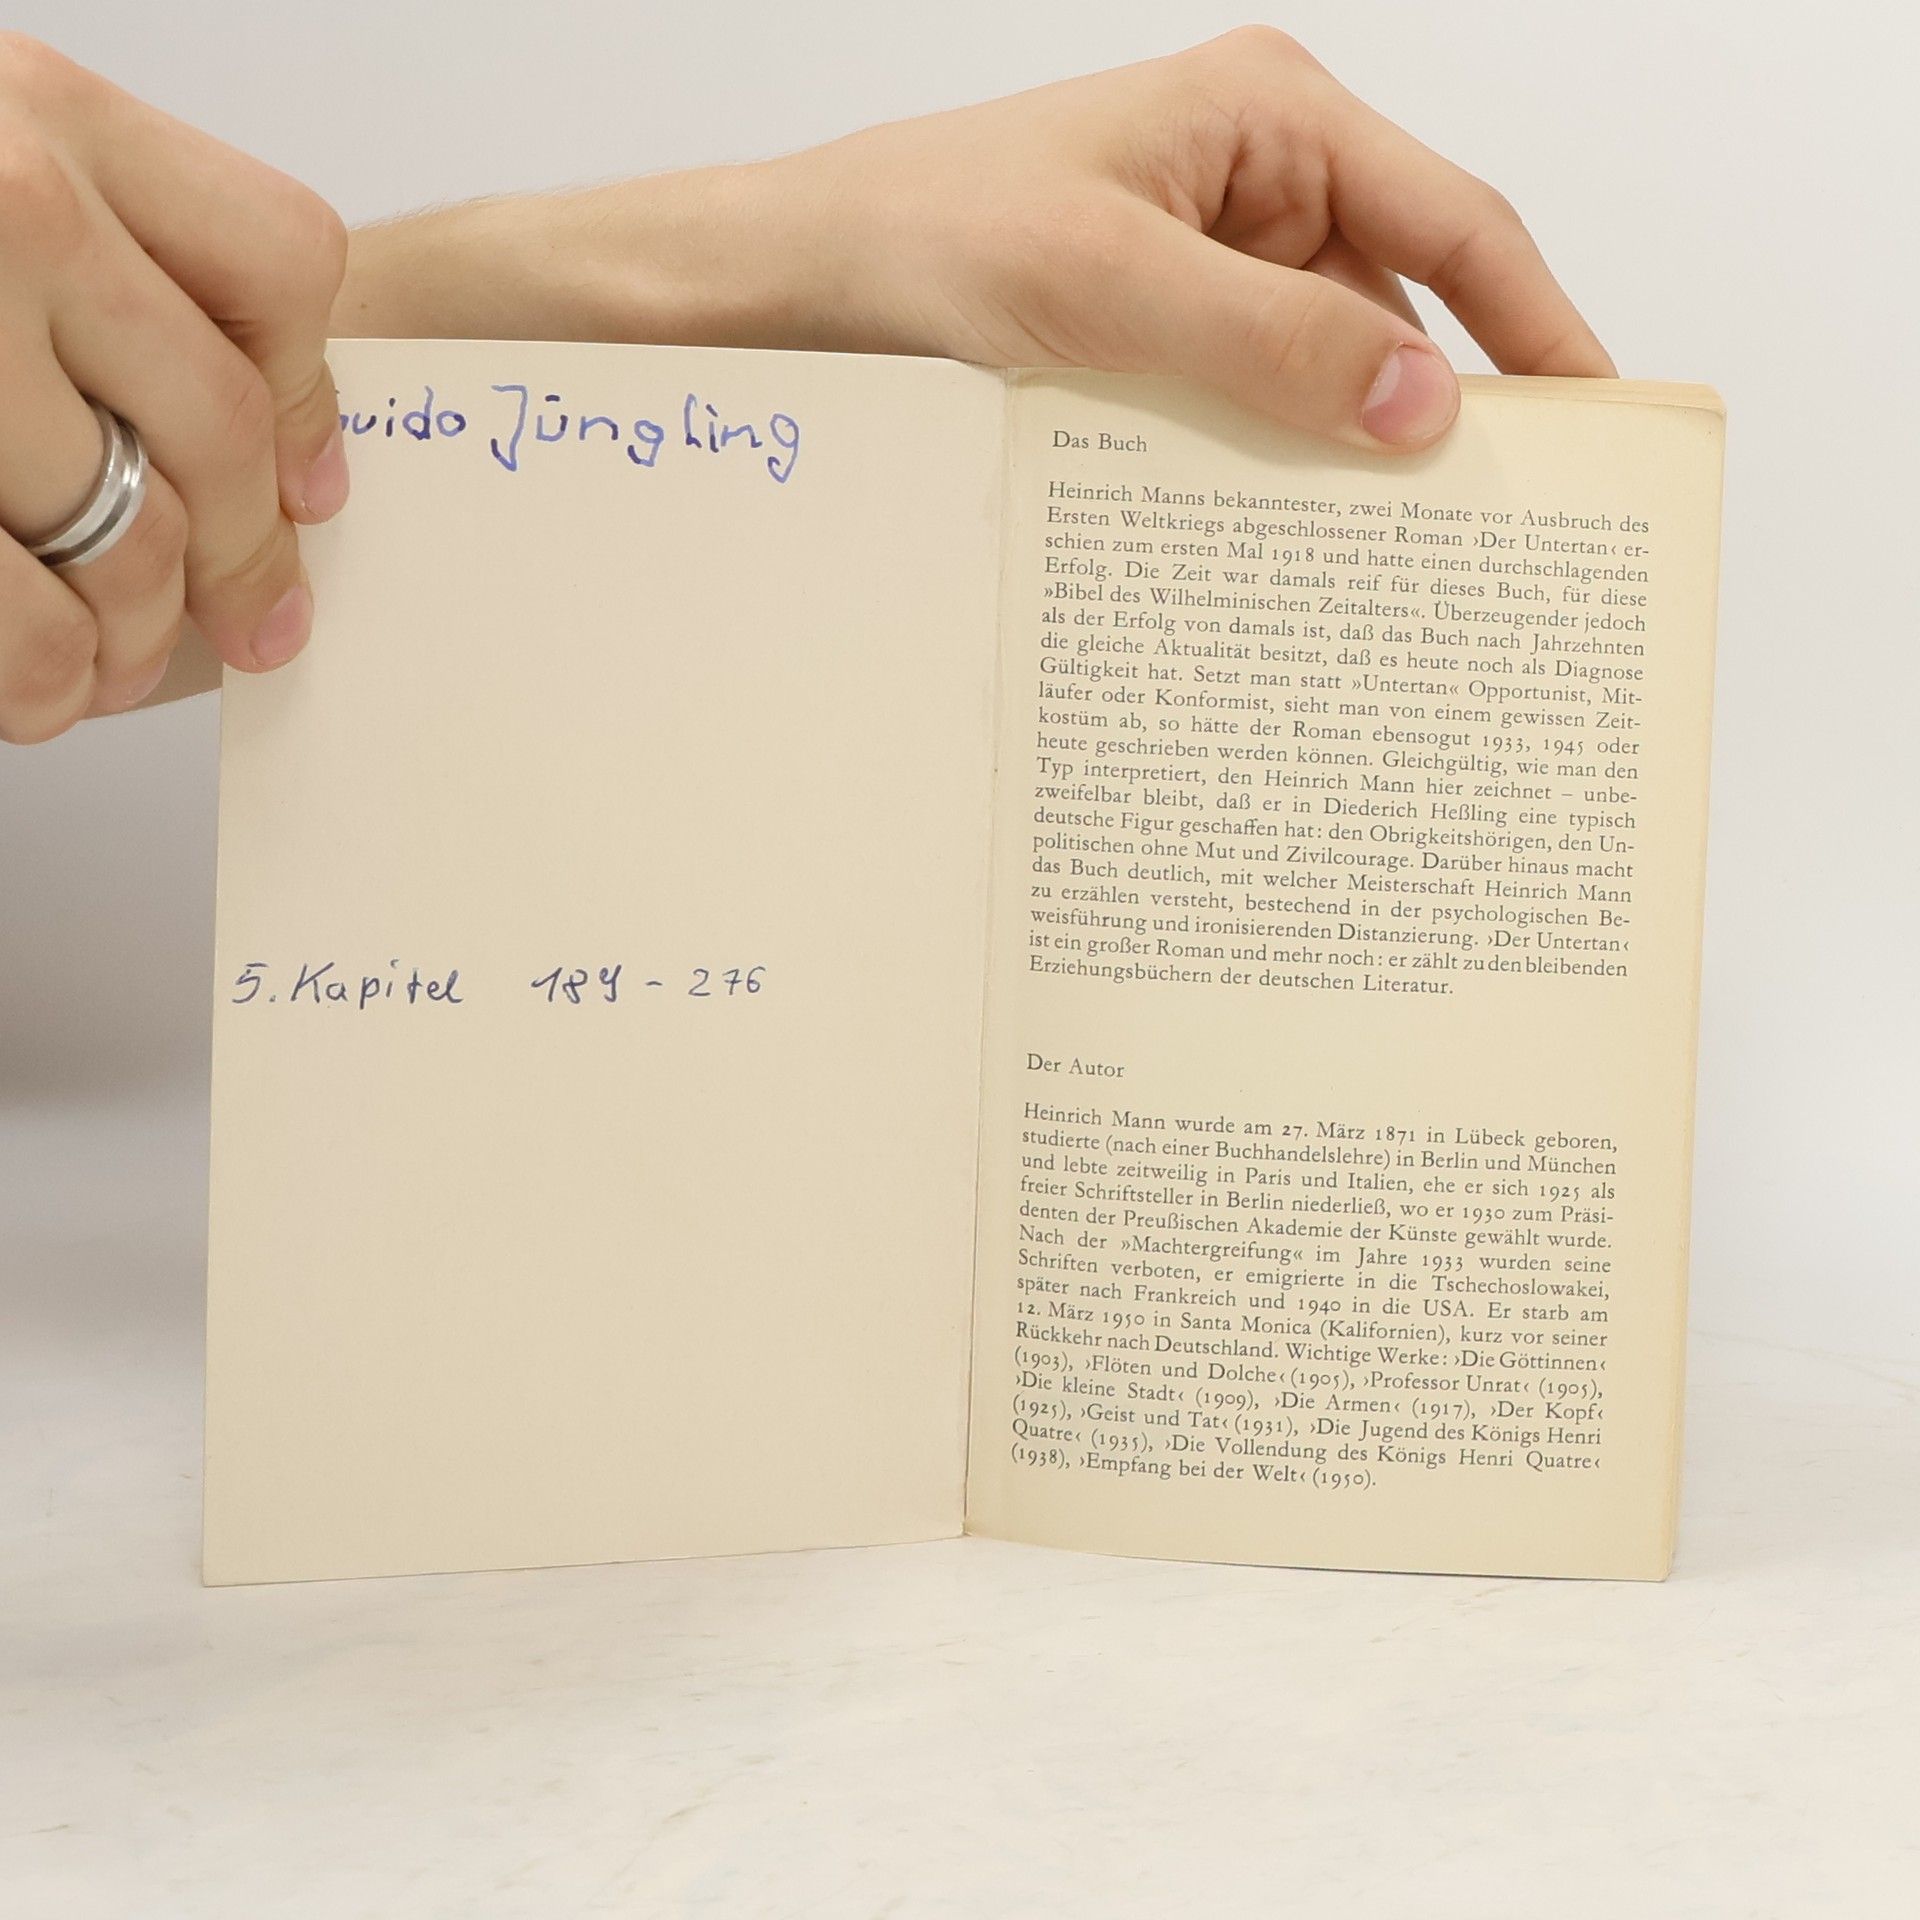 Guido Jüngling
5. Kapitel 189 - 276
Das Buch
Heinrich Manns bekanntester, zwei Monate vor Ausbruch des
Ersten Weltkriegs abgeschlossener Roman ›Der Untertan‹ er-
schien zum ersten Mal 1918 und hatte einen durchschlagenden
Erfolg. Die Zeit war damals reif für dieses Buch, für diese
»Bibel des Wilhelminischen Zeitalters«. Überzeugender jedoch
als der Erfolg von damals ist, daß das Buch nach Jahrzehnten
die gleiche Aktualität besitzt, daß es heute noch als Diagnose
Gültigkeit hat. Setzt man statt »Untertan« Opportunist, Mit-
läufer oder Konformist, sieht man von einem gewissen Zeit-
kostüm ab, so hätte der Roman ebensogut 1933, 1945 oder
heute geschrieben werden können. Gleichgültig, wie man den
Typ interpretiert, den Heinrich Mann hier zeichnet – unbe-
zweifelbar bleibt, daß er in Diederich Heßling eine typisch
deutsche Figur geschaffen hat: den Obrigkeitshörigen, den Un-
politischen ohne Mut und Zivilcourage. Darüber hinaus macht
das Buch deutlich, mit welcher Meisterschaft Heinrich Mann
zu erzählen versteht, bestechend in der psychologischen Be-
weisführung und ironisierenden Distanzierung. ›Der Untertan‹
ist ein großer Roman und mehr noch: er zählt zu den bleibenden
Erziehungsbüchern der deutschen Literatur.
Der Autor
Heinrich Mann wurde am 27. März 1871 in Lübeck geboren,
studierte (nach einer Buchhandelslehre) in Berlin und München
und lebte zeitweilig in Paris und Italien, ehe er sich 1925 als
freier Schriftsteller in Berlin niederließ, wo er 1930 zum Präsi-
denten der Preußischen Akademie der Künste gewählt wurde.
Nach der »Machtergreifung« im Jahre 1933 wurden seine
Schriften verboten, er emigrierte in die Tschechoslowakei,
später nach Frankreich und 1940 in die USA. Er starb am
12. März 1950 in Santa Monica (Kalifornien), kurz vor seiner
Rückkehr nach Deutschland. Wichtige Werke: ›Die Göttinnen‹
(1903), ›Flöten und Dolche‹ (1905), ›Professor Unrat‹ (1905),
›Die kleine Stadt‹ (1909), ›Die Armen‹ (1917), ›Der Kopf‹
(1925), ›Geist und Tat‹ (1931), ›Die Jugend des Königs Henri
Quatre‹ (1935), ›Die Vollendung des Königs Henri Quatre‹
(1938), ›Empfang bei der Welt‹ (1950).